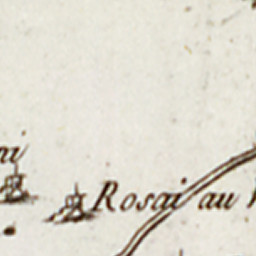 Rosai au